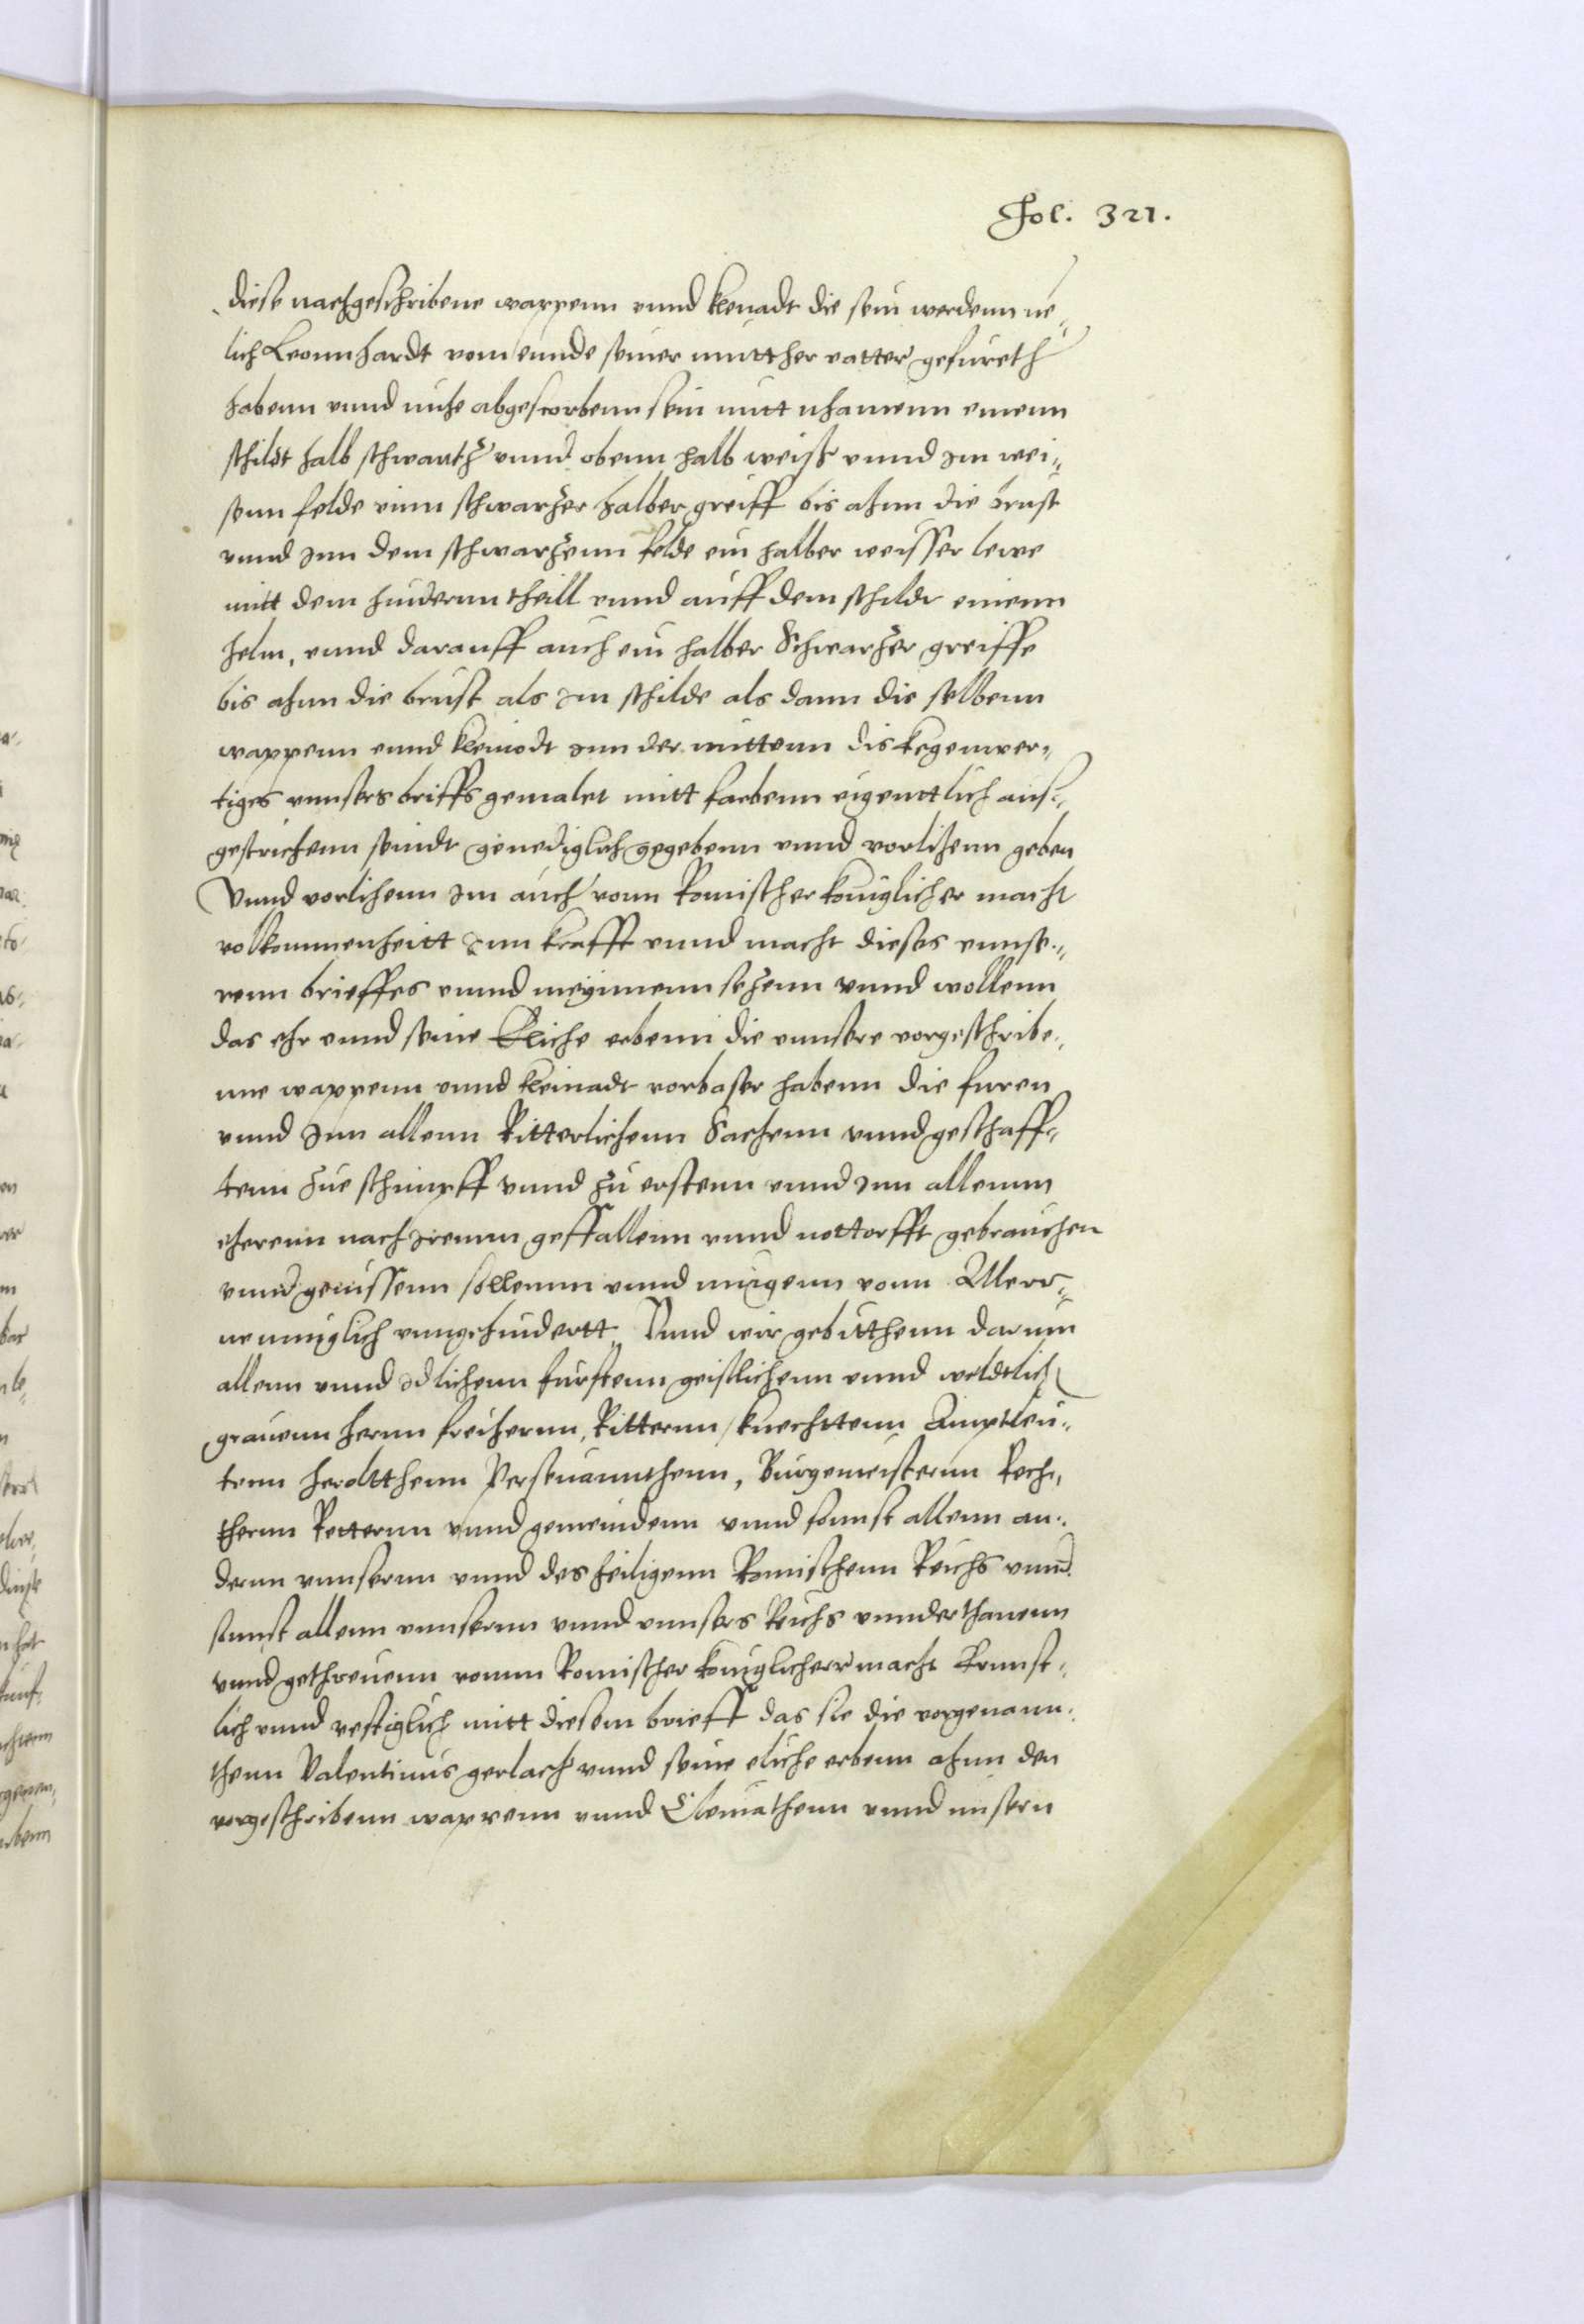 Fol. 321.
diese nachgeschribene wappenn vnnd klenadt die sein werdenn ne-
lich Leonnhardt vom ennde seiner mutther vatter gefureth
habenn vnnd nuhe abgestorbenn sein mitt nhamenn einenn
schildt halb schwartz vnnd obenn halb weiß vnnd im wei-
senn felde einn schwarzer halber greiff bis ahnn die brust
vnnd inn dem schwarzenn felde ein halber weisser lewe
mitt dem hindernn theill vnnd auff dem schildt einenn
helm, vnnd darauff auch ein halber Schwarzer greiffe
bis ahnn die brust als im schilde als dann die selbenn
wappenn vnnd kleinodt inn der mittenn dis kegenwer-
tiges vnnsers briffs gemalet mitt farbenn eigenttlich aus-
gestrichenn seindt genediglich gegebenn vnnd vorlihenn geben
Vnnd vorlihenn im auch vonn Romischer koniglicher macht
volkommenheitt inn krafft vnnd macht dieses vnnse-
renn brieffes vnnd meyinenn sezenn vnnd wollenn
das ehr vnnd seine Eliche erbenn die vnnsere vorgeschribe-
nne wappenn vnnd kleinadt vorbaser habenn die furen
vnnd inn allenn Ritterlichenn Sachenn vnnd geschaff-
tenn zue schimpff vnnd zu erstenn vnnd inn allennn
eherenn nach irennn geffallenn vnnd nottorfft gebrauchen
vnnd genissenn sollennn vnnd mugenn vonn Allerr-
nenniglich vnngehindertt Vnnd wir gebitthenn darum
allenn vnnd idlichenn furstenn geistlichenn vnnd weldtlich
grauenn hernn freihernn, Ritternn, knechttenn Amptleu-
tenn heroltthenn Perseuannthenn, Burgemeisternn Rech-
thernn Retternn vnnd gemeindenn vnnd sonnst allenn an-
dernn vnnsernn vnnd des heiligenn Romischenn Reichs vnnd
sonnst allenn vnnsernn vnnd vnnsers Reichs vnnderthanenn
vnnd gethreuenn vonnn Romischer koniglicherr macht Ernnst-
lich vnnd vestiglich mitt diesem brieff das sie die vorgenann-
thenn Valentinus gerlach vnnd seine eliche erbenn ahnn den
vorgeschribenn wappenn vnnd Cleinathenn vnnd unsern